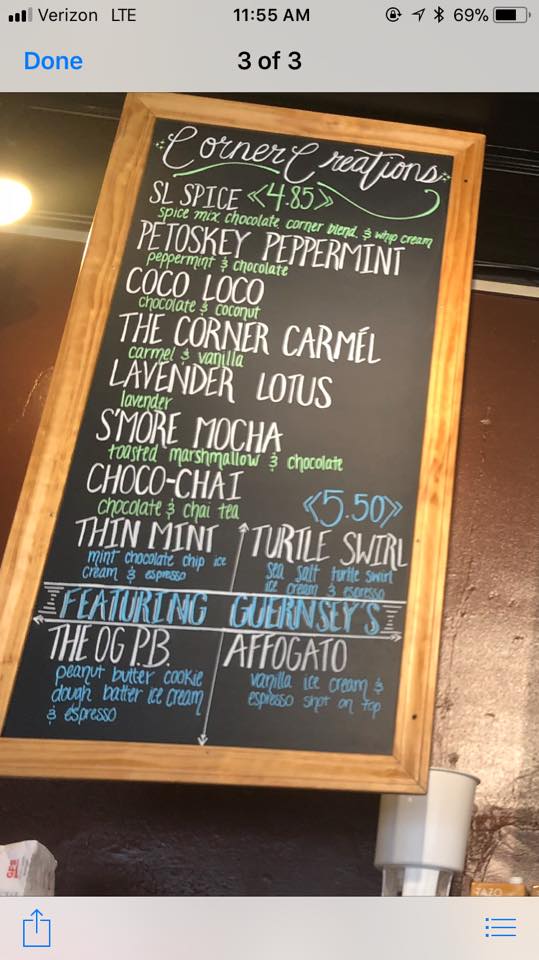 Verizon LTE 11:55 AM 69%
Done 3 of 3
Corner Creations
SL SPICE <<4.85>>
spice mix chocolate, corner blend, & whip cream
PETOSKEY PEPPERMINT
peppermint & chocolate
COCO LOCO
chocolate & coconut
THE CORNER CARMÉL
carmel & vanilla
LAVENDER LOTUS
lavender
S'MORE MOCHA
toasted marshmallow & chocolate
CHOCO-CHAI
chocolate & chai tea
<<5.50>>
THIN MINT
mint chocolate chip ice
cream & espresso
TURTLE SWIRL
sea salt turtle swirl
ice cream & espresso
FEATURING GUERNSEY'S
THE OG P.B.
peanut butter cookie
dough batter ice cream
& espresso
AFFOGATO
vanilla ice cream &
espresso shot on top
GFS
TAZO